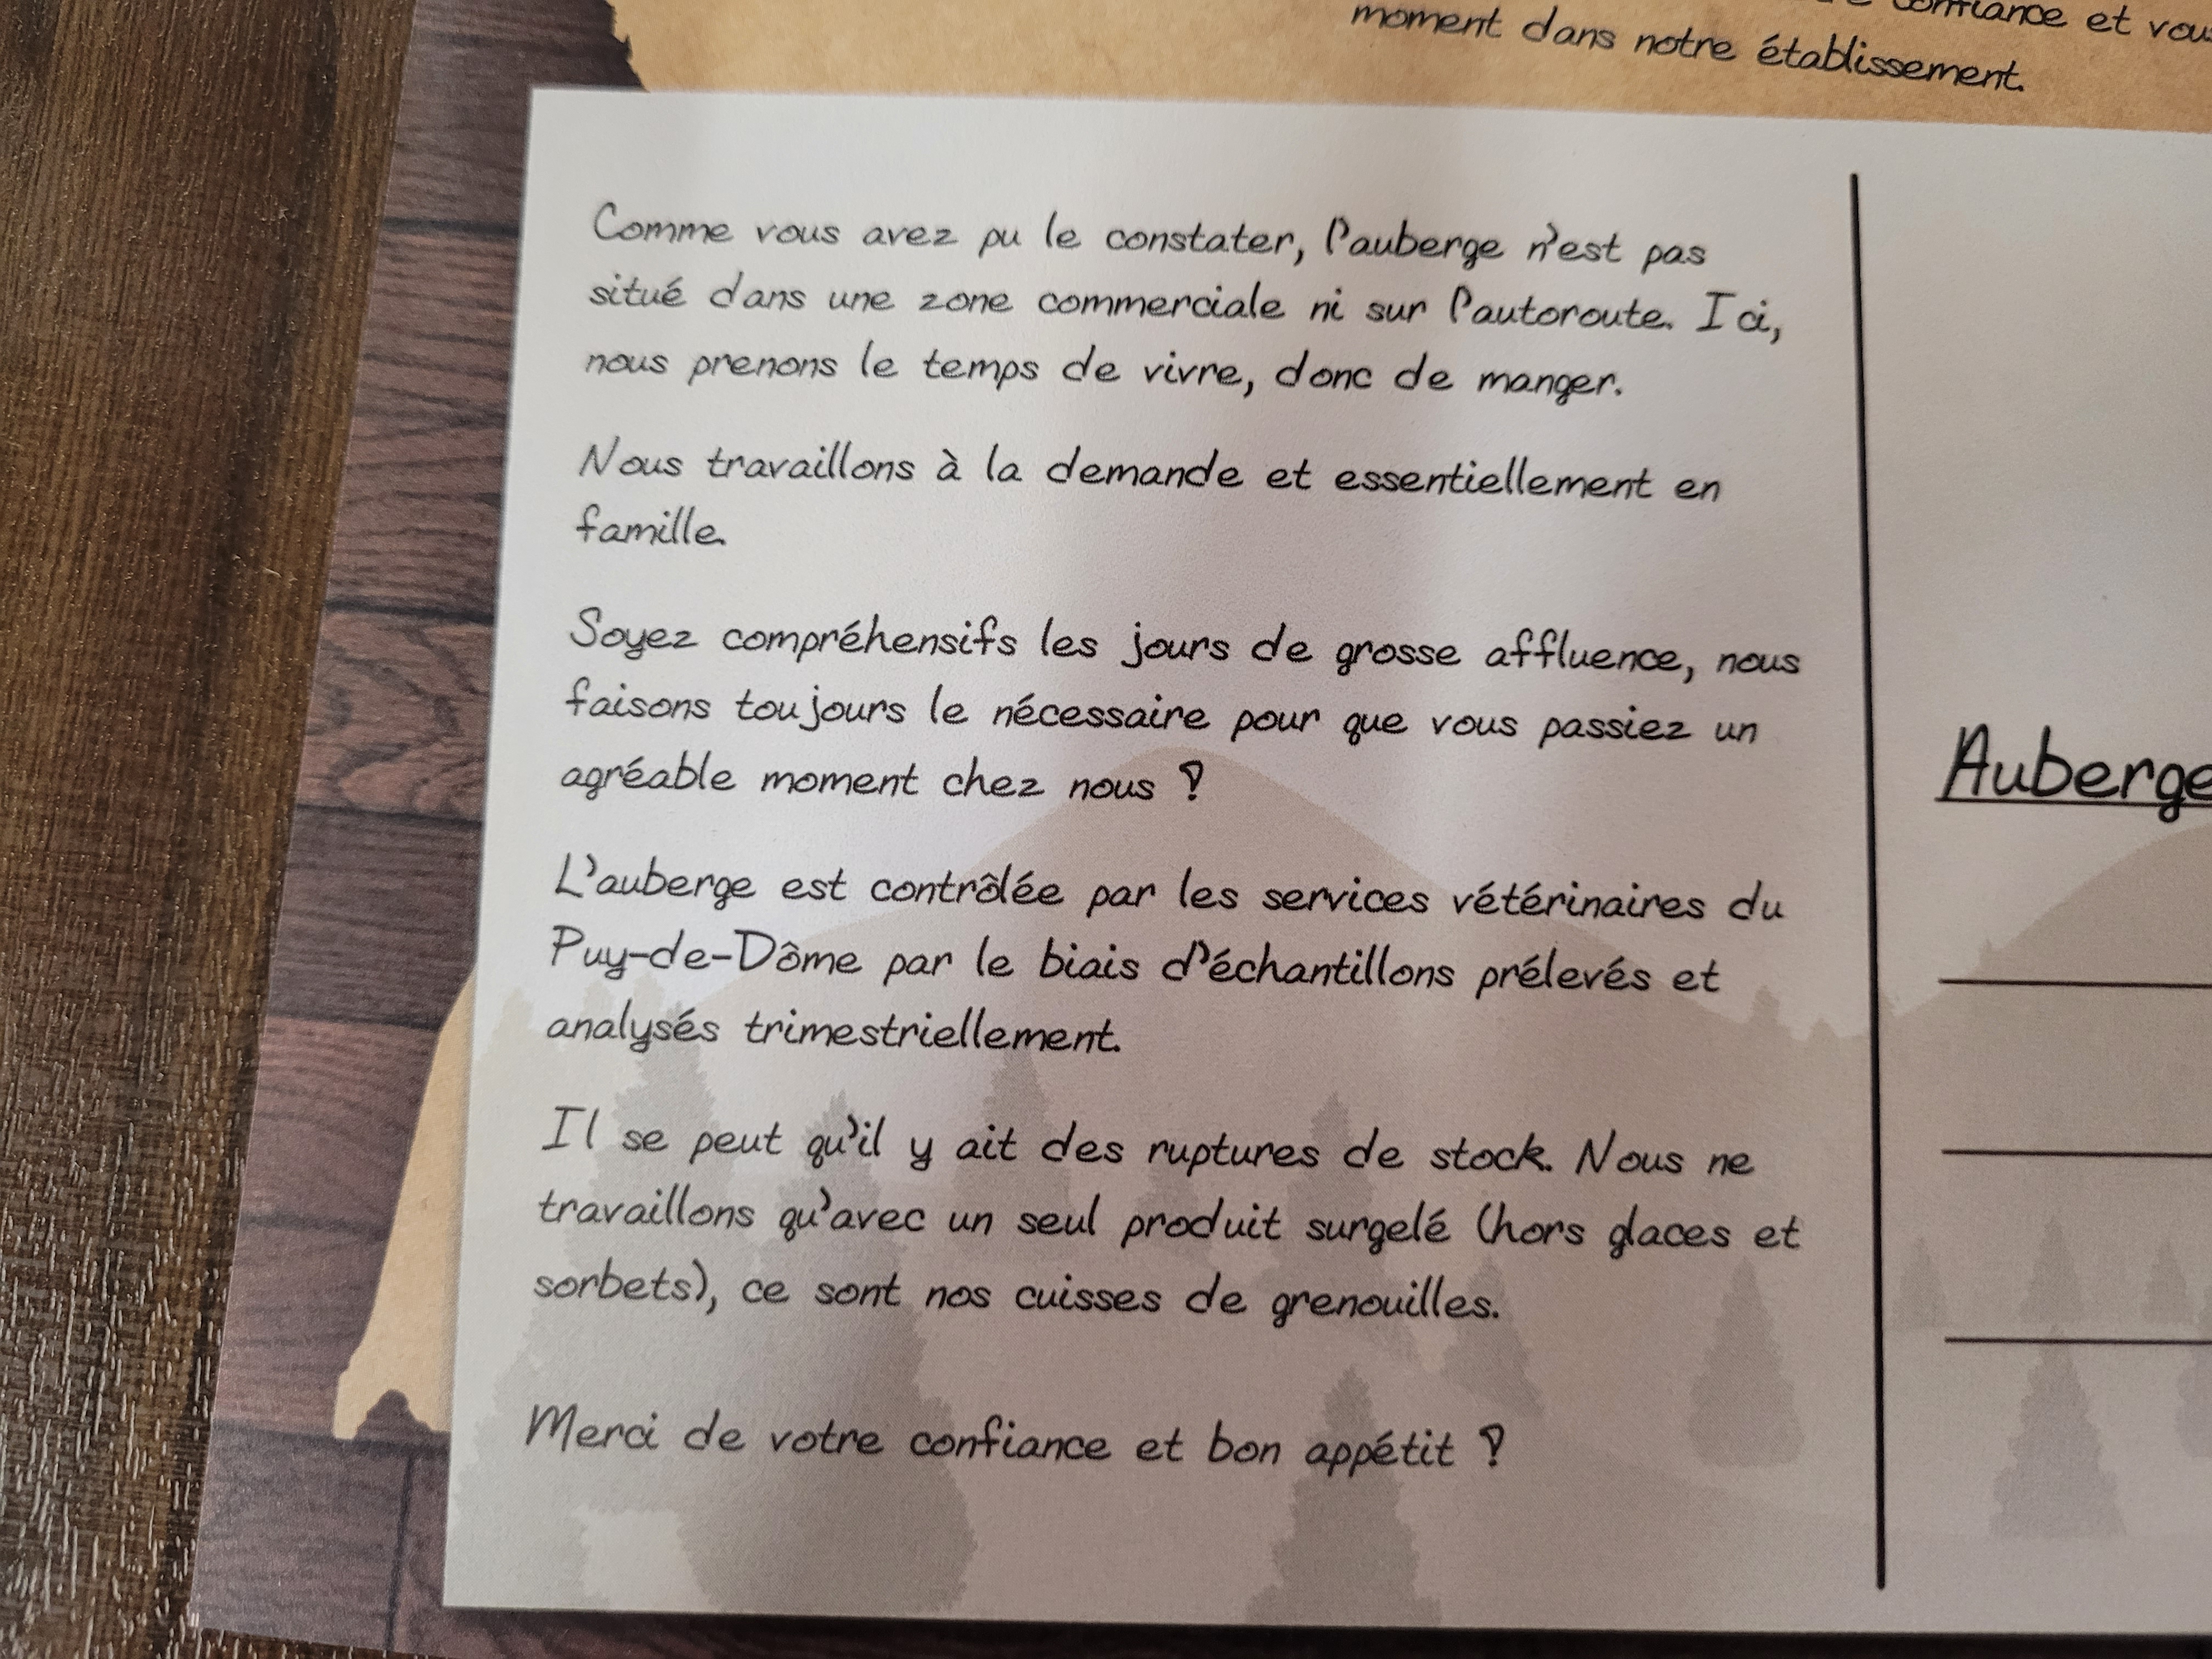 confiance et vous
moment dans notre établissement.
Comme vous avez pu le constater, l'auberge n'est pas
situé dans une zone commerciale ni sur l'autoroute. Ici,
nous prenons le temps de vivre, donc de manger.
Nous travaillons à la demande et essentiellement en
famille.
Soyez compréhensifs les jours de grosse affluence, nous
faisons toujours le nécessaire pour que vous passiez un
agréable moment chez nous !
L'auberge est contrôlée par les services vétérinaires du
Puy-de-Dôme par le biais d'échantillons prélevés et
analysés trimestriellement.
Il se peut qu'il y ait des ruptures de stock. Nous ne
travaillons qu'avec un seul produit surgelé (hors glaces et
sorbets), ce sont nos cuisses de grenouilles.
Merci de votre confiance et bon appétit !
Auberge